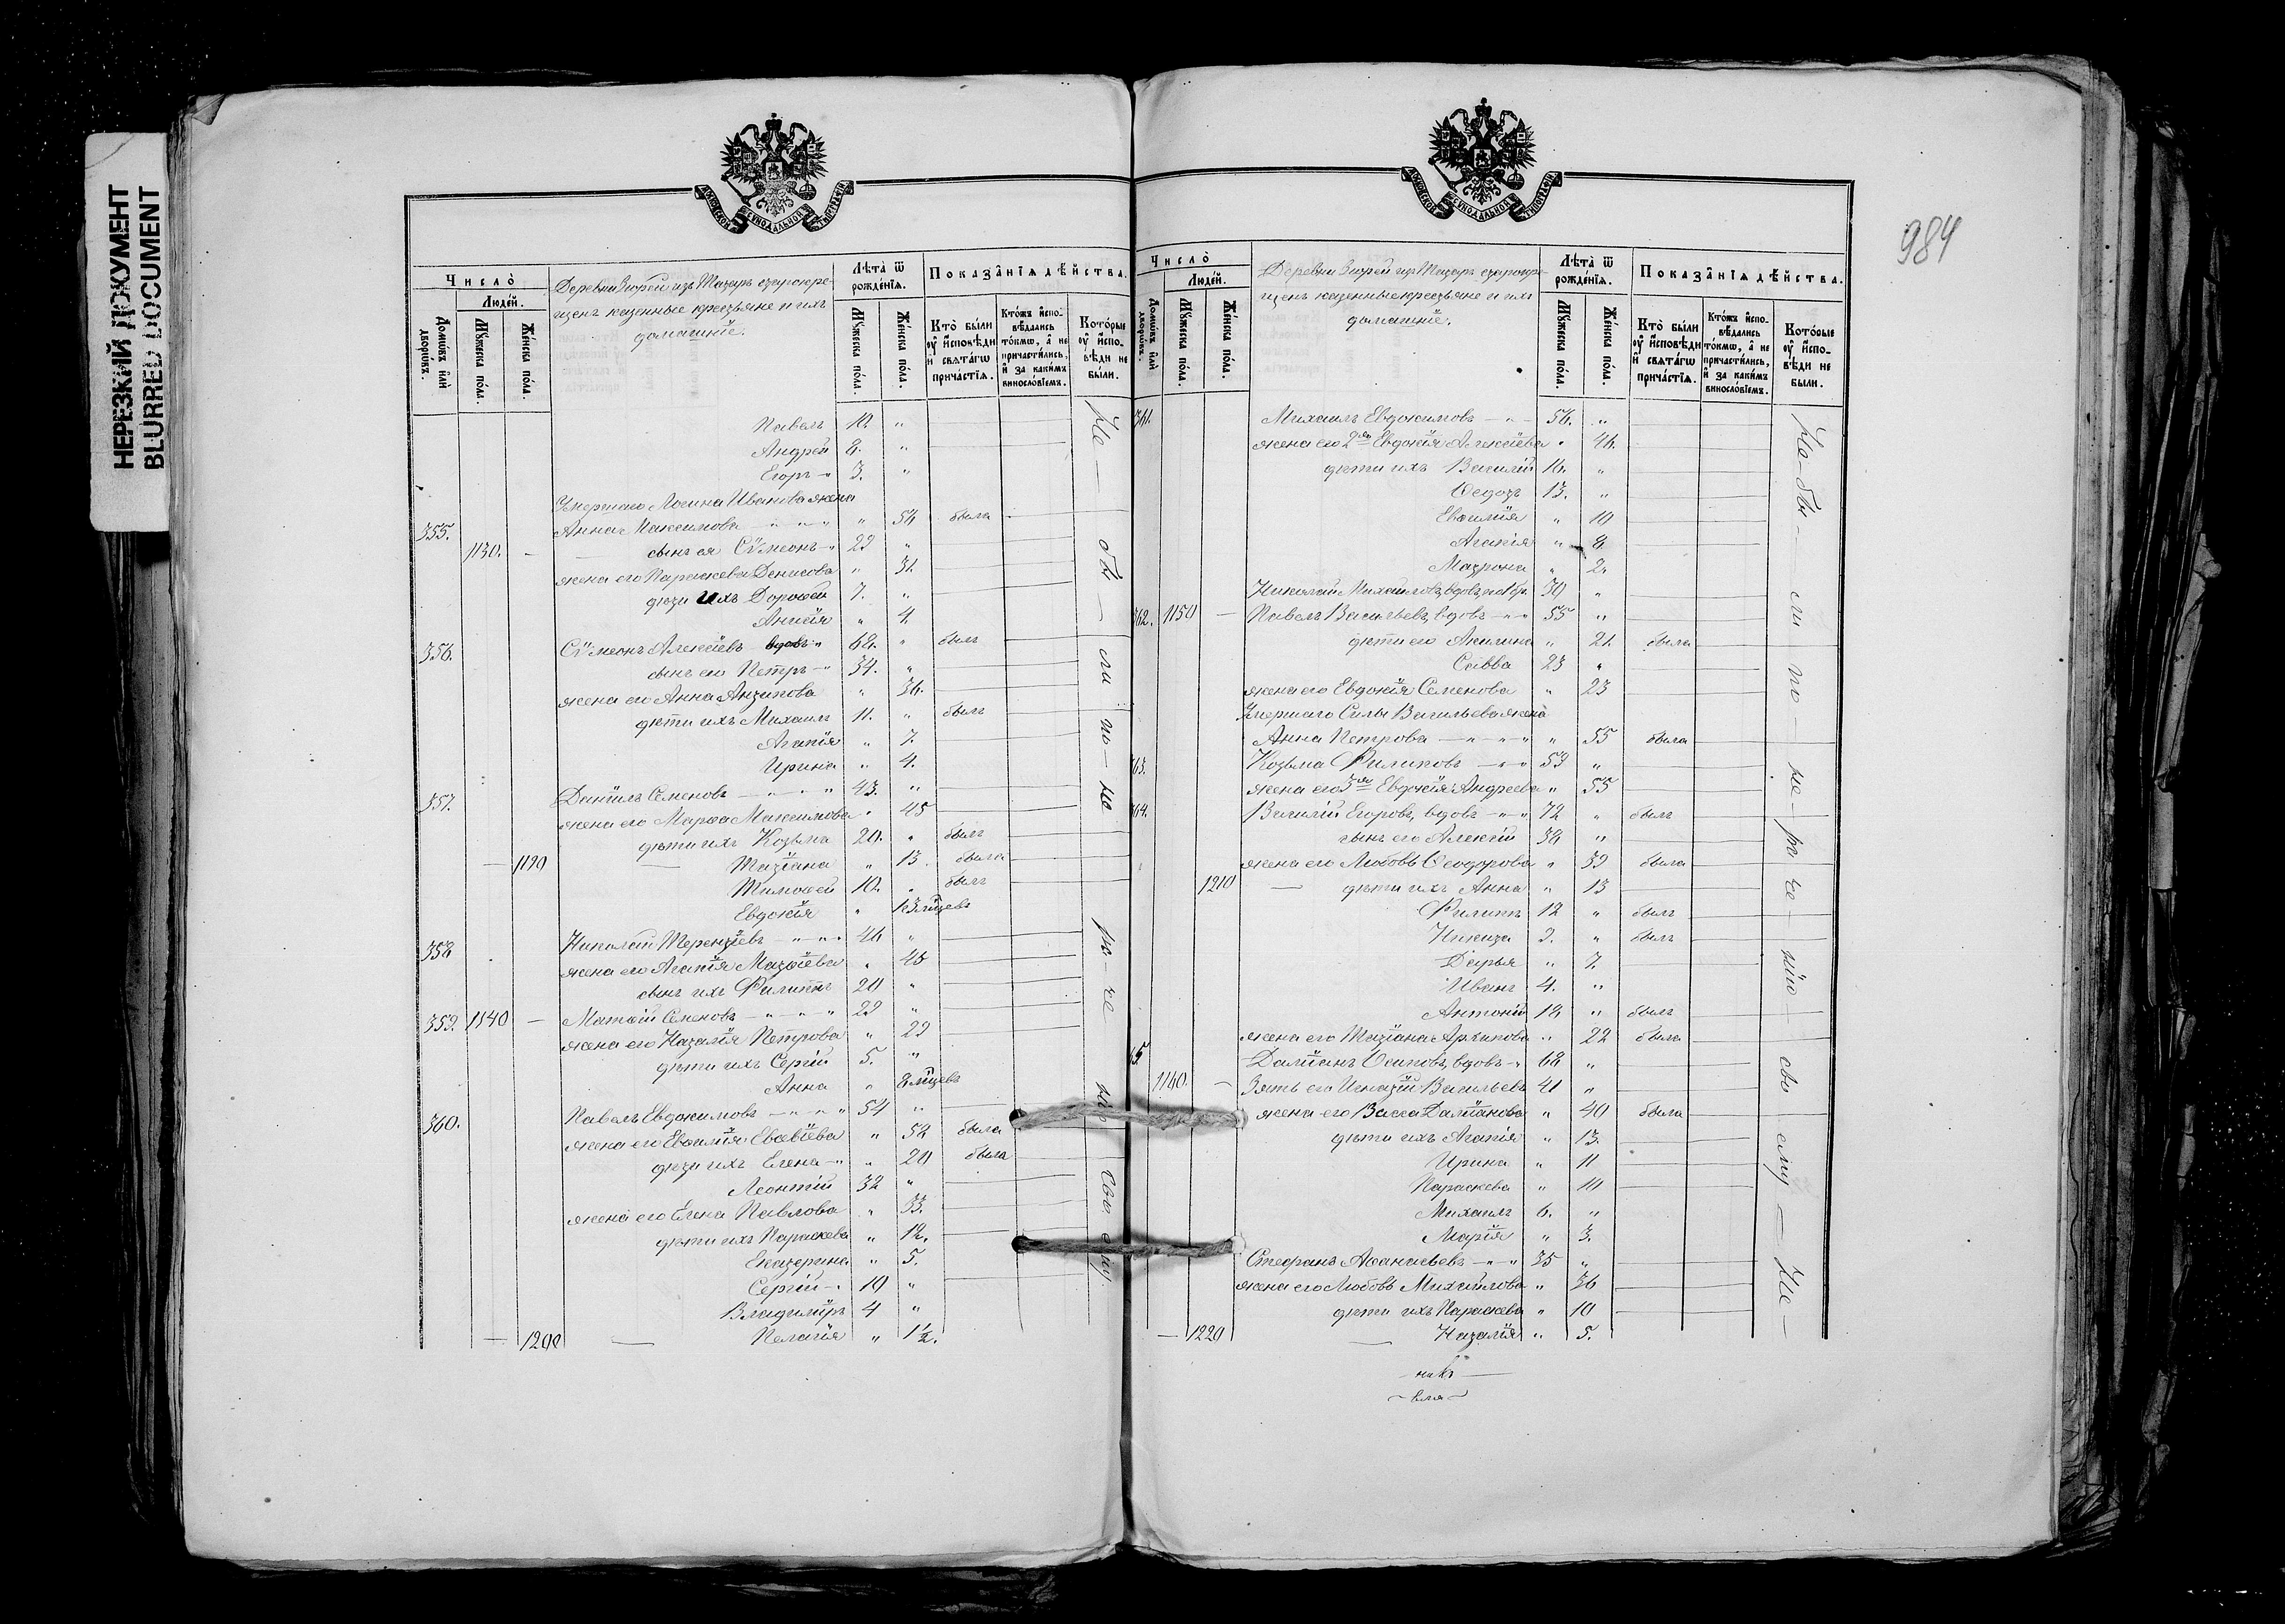 НЕРЕЗКИЙ ДОКУМЕНТ
BLURRED DOCUMENT
МОСКОВСКОЙ СѴНОДАЛЬНОЙ ТИПОГРАФІИ
Число̀
Людей.
Домѡвъ и҆лѝ дворѡвъ.
Мꙋжеска пола.
Женска пола.
Деревни изъ Татаръ старокре-
щенъ казенные крестьяне и ихъ
домашніе.
Лѣта̀ ѿ рожденїѧ.
Мꙋжеска пола.
Женска пола.
Показанїѧ дѣйства.
Кто̀ бы́ли ᲂу҆ и҆сповѣди и҆ свѧта́гѡ прича́стїѧ.
Кто́жъ и҆спо-вѣдались то́кмѡ, а҆ не причастились, и҆ за каки́мъ винослóвїемъ.
Которые ᲂу҆ и҆спо-вѣди не бы́ли.
Павелъ 12. "
Андрей 8. "
Егоръ " 3. "
Умершаго Логина Иванова жена
355. Анна Максимова " " " " 54 была
1130. — сынъ ея Сѵмеонъ " 29 "
жена его Параскева Денисова " 31.
дѣти ихъ Дорофей 7. "
Анисія " 4
356. Сѵмеонъ Алексіевъ вдовъ " 68. " былъ
сынъ его Петръ " 34. "
жена его Анна Антипова " 36.
дѣти ихъ Михаилъ 11. " былъ
Агапія " 7.
Ирина " 4.
357. Даніилъ Семеновъ " " " 43. "
жена его Марѳа Максимова " 45
дѣти ихъ Козьма 20. " былъ
— 1190 — Татіана " 13. была
Тимоѳей 10. " былъ
Евдокія "
358 Николай Терентіевъ " " " 46 "
жена его Агапія Матѳіева " 45
сынъ ихъ Филиппъ 20 "
359. 1140 — Матѳій Семеновъ " " " 29 "
жена его Наталія Петрова " 29
дѣти ихъ Сергій 5. "
Анна " 8 м͠цевъ
360. Павелъ Евдокимовъ " " " 54 "
жена его Евѳимія Евсевіева " 52 была
дѣти ихъ Елена " " 20 была
Леонтій 32 "
жена его Елена Павлова " 33.
дѣти ихъ Параскева " 12.
Екатерина " 5.
Сергій " 10 "
Владиміръ 4 "
— 1200 — Пелагія " 1½.
Не — бы — ли по — не — ра — че — нію сво — ему.
984
МОСКОВСКОЙ СѴНОДАЛЬНОЙ ТИПОГРАФІИ
Число̀
Людей.
Домѡвъ и҆лѝ дворѡвъ.
Мꙋжеска пола.
Женска пола.
Деревни изъ Татаръ старокре-
щенъ казенные крестьяне и ихъ
домашніе.
Лѣта̀ ѿ рожденїѧ.
Мꙋжеска пола.
Женска пола.
Показанїѧ дѣйства.
Кто̀ бы́ли ᲂу҆ и҆сповѣди и҆ свѧта́гѡ прича́стїѧ.
Кто́жъ и҆спо-вѣдались то́кмѡ, а҆ не причастились, и҆ за каки́мъ винослóвїемъ.
Которые ᲂу҆ и҆спо-вѣди не бы́ли.
361. Михаилъ Евдокимовъ " " 56. "
жена его 2я Евдокія Алексіева " 46.
дѣти ихъ Василій 16. "
Ѳедотъ 13. "
Евѳимія " 10
Агапія " 8.
Матрона " 2.
Николай Михаиловъ, вдовъ 30 "
362. 1150 — Павелъ Васильевъ, вдовъ " " 55 "
дѣти его Акилина " 21. была
Савва 23 "
жена его Евдокія Семенова " 23
Умершаго Силы Васильева жена
Анна Петрова " " " " 55 была
63. Козьма Филиповъ " " 53 "
жена его 3я Евдокія Андреева " 55
64. Василій Егоровъ, вдовъ " " 72 " былъ
сынъ его Алексій 38 "
жена его Любовь Ѳеодорова " 39 была
1210 — дѣти ихъ Анна " 13
Филиппъ 12 " былъ
Никита 9. " былъ
Дарья " 7.
Иванъ 4. "
Антоній 18 " былъ
жена его Татіана Архипова " 22 была
65 Даміанъ Осиповъ, вдовъ " 68 "
1160. — Зять его Игнатій Васильевъ 41 "
жена его Васса Даміанова " 40 была
дѣти ихъ Агапія " 13.
Ирина " 11
Параскева " 10
Михаилъ 6. "
Марія " 3.
Стефанъ Аѳанасьевъ " " 35 "
жена его Любовь Михаилова " 36
дѣти ихъ Параскева " 10
— 1220 — Наталія " 5.
Не — бы — ли по — не — ра — че — нію — сво ему — Не —